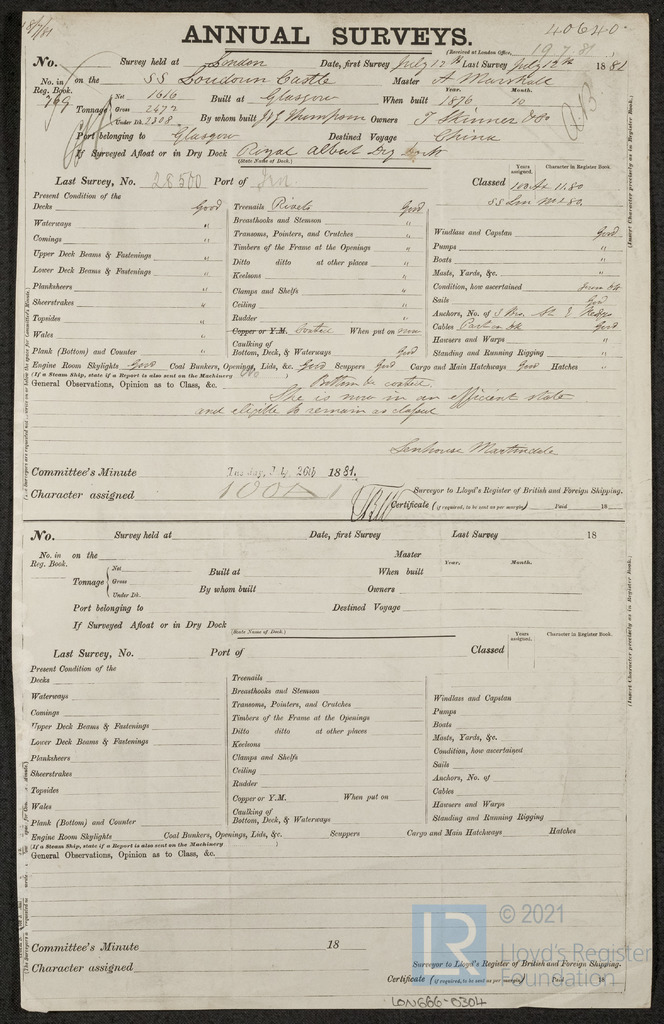 18/7/81
ANNUAL SURVEYS.
40640
(Received at London Office, 19.7.81
No. Survey held at London Date, first Survey July 12th Last Survey July 12th 1881
No. in Reg. Book. 799 on the SS Loudoun Castle Master A Marshall
Tonnage Net 1616 Gross 2472 Under Dk. 2308 Built at Glasgow When built Year. 1876 Month. 10
By whom built J&G Thompson Owners T Skinner & Co
Port belonging to Glasgow Destined Voyage China
If Surveyed Afloat or in Dry Dock Royal Albert Dry Dock
(State Name of Dock.)
Last Survey, No. 28500 Port of Classed
Years assigned. Character in Register Book.
100 A1 11.80
Present Condition of the
Decks Good Treenails Rivets Good
Waterways " Breasthooks and Stemson " Windlass and Capstan Good
Comings " Transoms, Pointers, and Crutches " Pumps "
Upper Deck Beams & Fastenings " Timbers of the Frame at the Openings " Boats "
Lower Deck Beams & Fastenings " Ditto ditto at other places " Masts, Yards, &c. "
Planksheers Keelsons " Condition, how ascertained from Dk
Sheerstrakes " Clamps and Shelfs " Sails Good
Topsides " Ceiling " Anchors, No. of
Wales " Rudder " Cables Part on Dk Good
Copper or Y.M. Coated When put on now Hawsers and Warps "
Plank (Bottom) and Counter " Caulking of Bottom, Deck, & Waterways Good Standing and Running Rigging "
Engine Room Skylights Good Coal Bunkers, Openings, Lids, &c. Good Scuppers Good Cargo and Main Hatchways Good Hatches "
(If a Steam Ship, state if a Report is also sent on the Machinery No )
General Observations, Opinion as to Class, &c. Bottom &c coated.
She is now in an efficient state
and eligible to remain as classed
Senhouse Martindale
Committee's Minute Tuesday, July 26th 1881.
Surveyor to Lloyd's Register of British and Foreign Shipping.
Character assigned 100A1
Certificate (if required, to be sent as per margin) Paid 18
(Insert Character precisely as in Register Book.)
No. Survey held at Date, first Survey Last Survey 18
No. in Reg. Book. on the Master
Tonnage Net Gross Under Dk. Built at When built Year. Month.
By whom built Owners
Port belonging to Destined Voyage
If Surveyed Afloat or in Dry Dock
(State Name of Dock.)
Last Survey, No. Port of Classed
Years assigned. Character in Register Book.
Present Condition of the
Decks Treenails
Waterways Breasthooks and Stemson Windlass and Capstan
Comings Transoms, Pointers, and Crutches Pumps
Upper Deck Beams & Fastenings Timbers of the Frame at the Openings Boats
Lower Deck Beams & Fastenings Ditto ditto at other places Masts, Yards, &c.
Planksheers Keelsons Condition, how ascertained
Sheerstrakes Clamps and Shelfs Sails
Topsides Ceiling Anchors, No. of
Wales Rudder Cables
Copper or Y.M. When put on Hawsers and Warps
Plank (Bottom) and Counter Caulking of Bottom, Deck, & Waterways Standing and Running Rigging
Engine Room Skylights Coal Bunkers, Openings, Lids, &c. Scuppers Cargo and Main Hatchways Hatches
(If a Steam Ship, state if a Report is also sent on the Machinery )
General Observations, Opinion as to Class, &c.
Committee's Minute 18
Character assigned
Surveyor to Lloyd's Register of British and Foreign Shipping.
Certificate (if required, to be sent as per margin) Paid 18
(Insert Character precisely as in Register Book.)
LR © 2021
Lloyd's Register
Foundation
LON666-0304